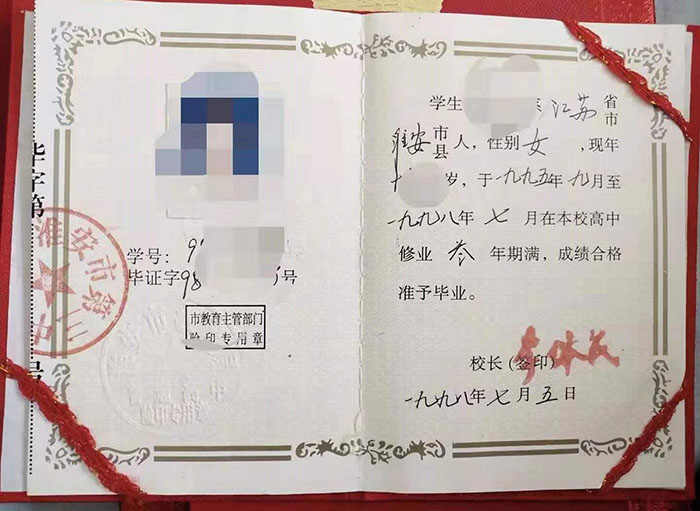 毕字第
号
淮安市第
中
学号：9
毕证字98 号
市教育主管部门
验印专用章
学生 系江苏省
市
淮安市
县人，性别女，现年
岁，于一九九五年九月至
一九九八年七月在本校高中
修业叁年期满，成绩合格
准予毕业。
校长（签印）
一九九八年七月五日